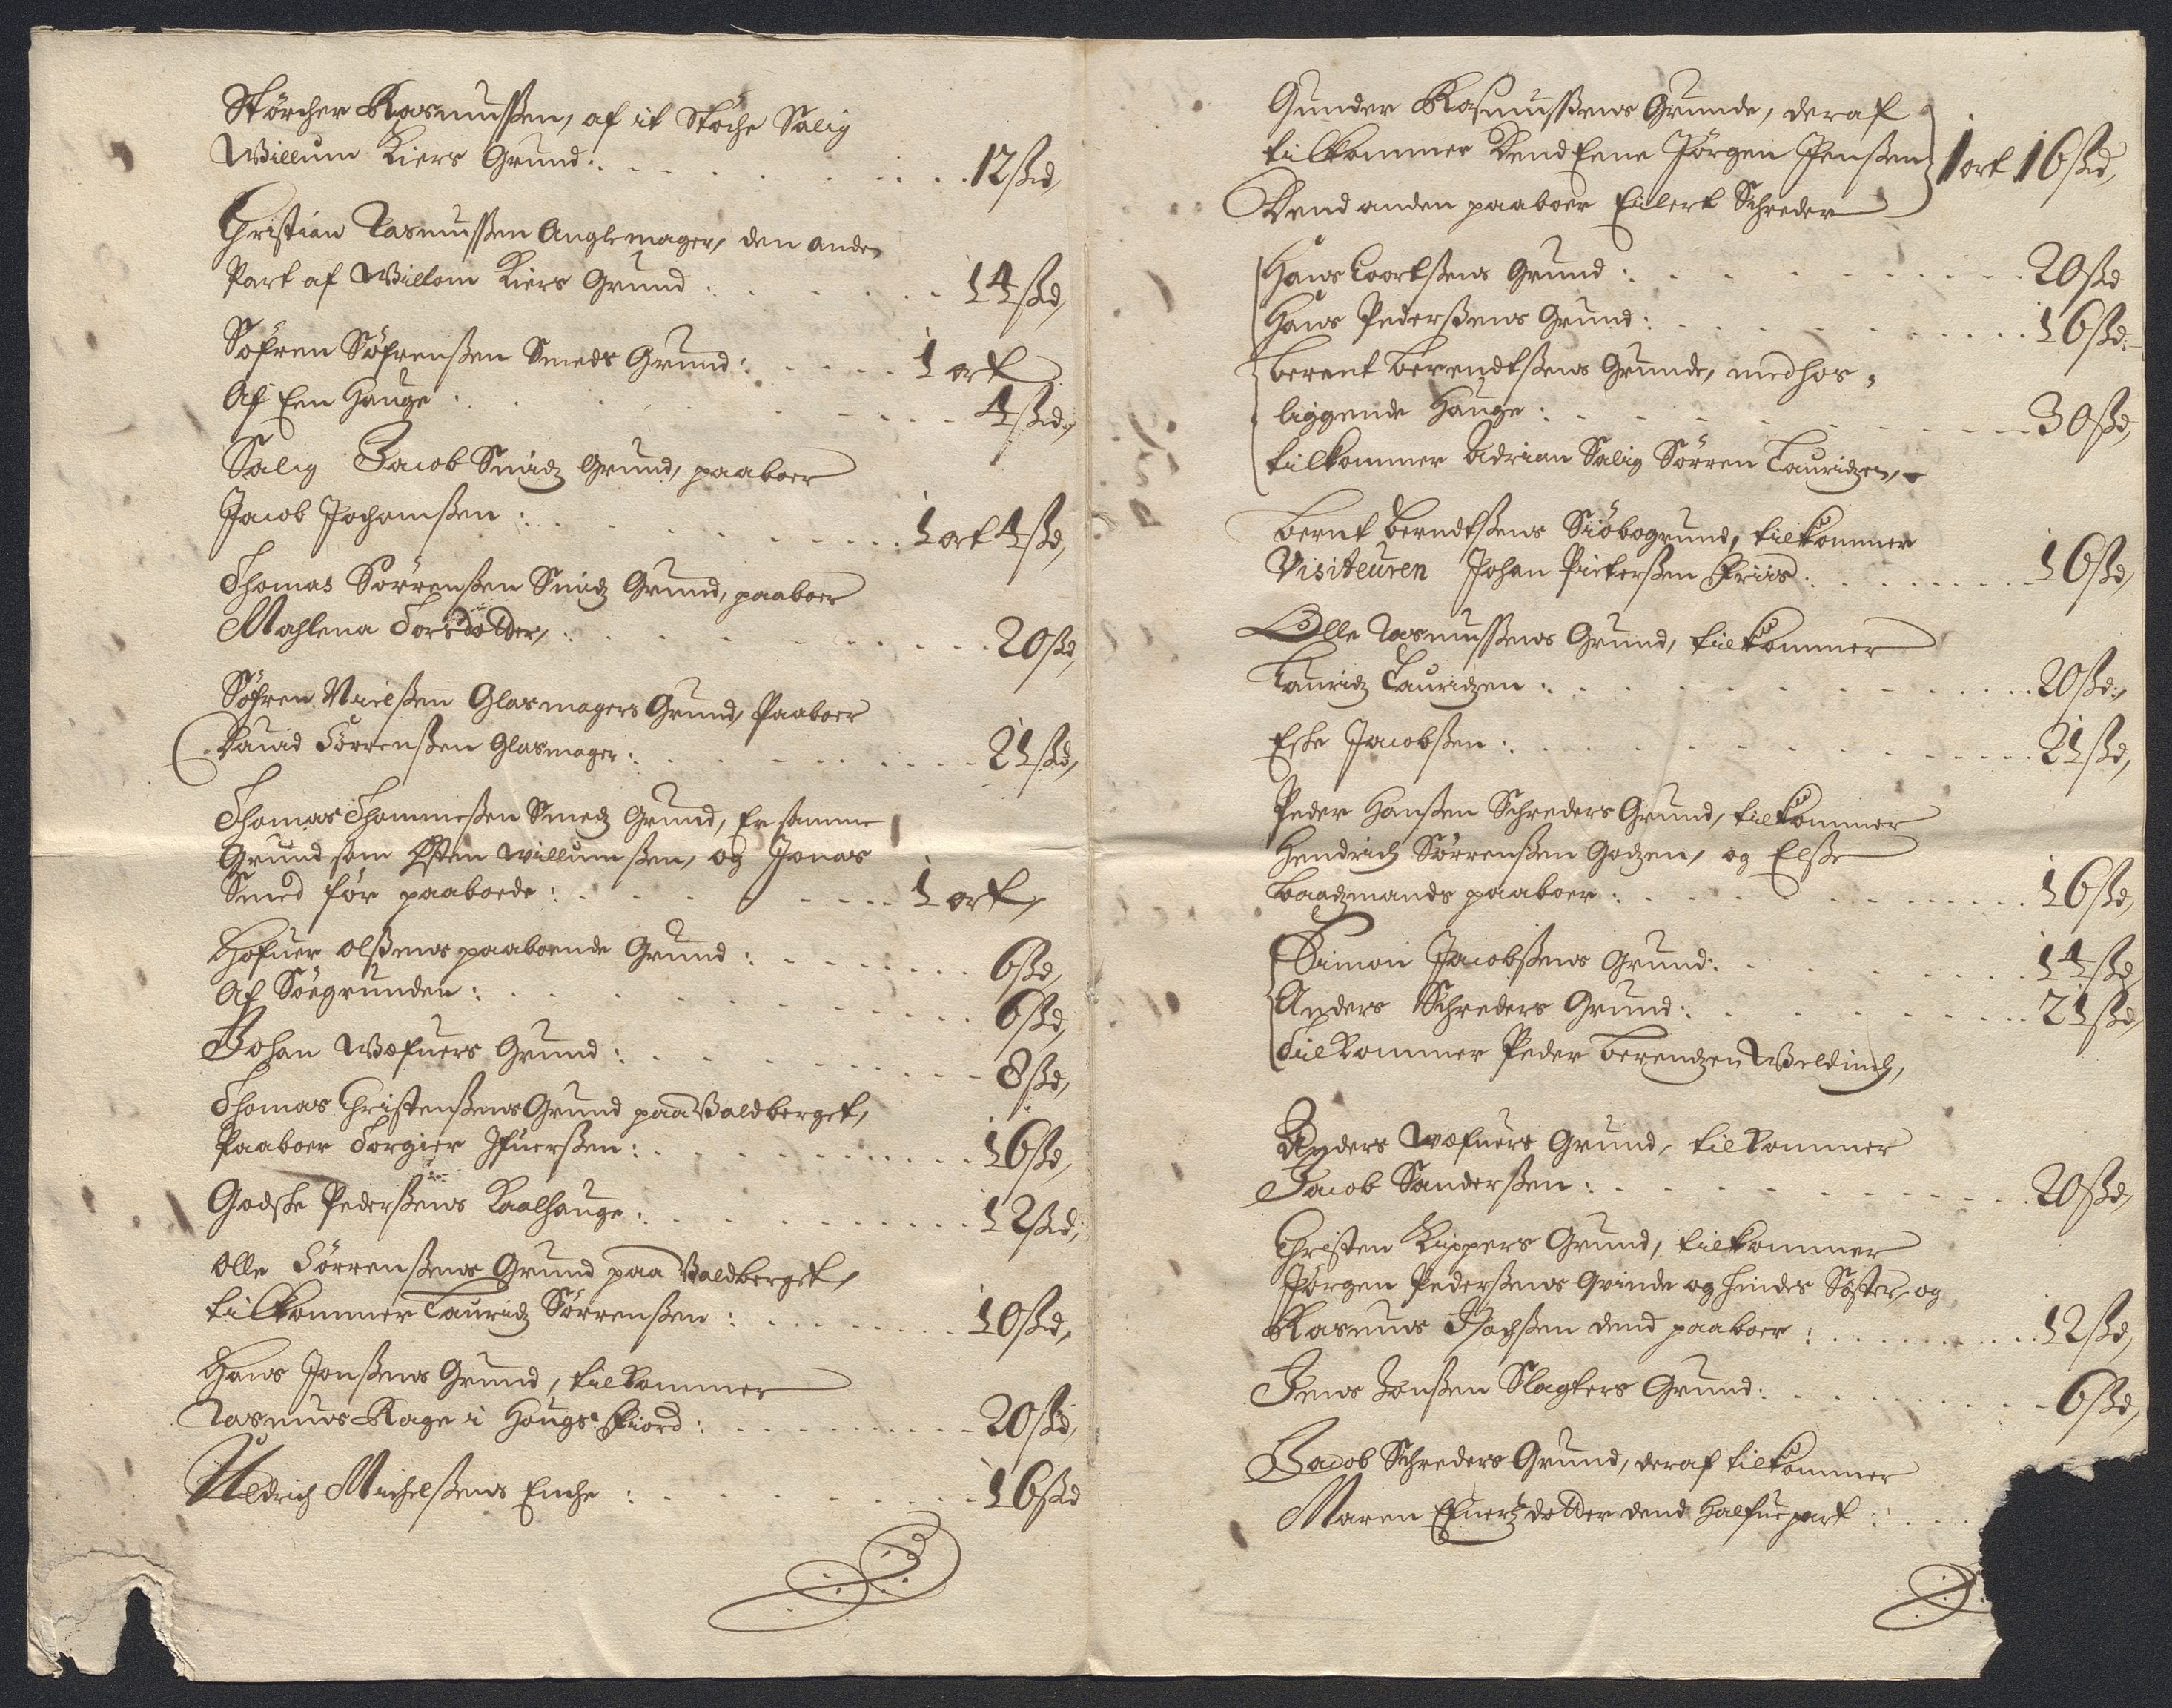 Störcher Rasmussen, af it Støche Salig
Willum Kiers Grund: 12 ßd,
Christian Rasmussen Anglemager, den anden
Part af Willom Kiers Grund: 14 ßd,
Söfren Söfrenßen Smeds Grund: 1 ort
Af Een Hauge 4 ßd,
Salig Jacob Smidz Grund, paaboer
Jacob Jochomßen: 1 ort 4 ßd,
Thomas Sörrenßen Smidz Grund, paaboer
Mahlena Torsdotter, 20 ßd,
Söfren Nielßen Glasmagers Grund, Paaboer
David Sörrenßen Glasmager: 21 ßd,
Thomas Thommeßen Smedz Grund, Er samme
Grund som Østen Willumßen, og Jonas
Smed för paaboede: 1 ort,
Hofuer Olßens paaboende Grund: 6 ßd,
Af Söegrunden: 6 ßd,
Johan Wæfuers Grund: 8 ßd,
Thomas Christenßens Grund paa Valdberget,
Paaboer Torgier Ifuerßen: 16 ßd,
Godske Pederßens Kaalhauge: 12 ßd,
Olle Sörrenßens Grund paa Valdberget,
tilkommer Lauridz Sörrenßen: 10 ßd,
Hans Jonßens Grund, tilkommer
Rasmus Rage i Haugs Fiord: 20 ßd,
Uldrich Michelßens Enche: 16 ßd
Gunder Rasmussens Grunde, deraf
tilkommer Dend Eene Jörgen Jenßen 1 ort 16 ßd,
Dend anden paaboer Eilert Schreder
Hans Coortßens Grund: 20 ßd
Hans Pederßens Grund: 16 ßd:
Berent Berendtßens Grunde, medhos,
liggende Hauge: 30 ßd,
tilkommer Adrian Salig Sörren Lauridzen,
Bernt Berndtßens Siöbogrund, tilkommer
Visiteuren Johan Pieterßen Friis: 16 ßd,
Olle Rasmussens Grund, tilkommer
Lauridz Lauridzen: 20 ßd:,
Eske Jacobßen: 21 ßd,
Peder Hanßen Schreders Grund, tilkommer
Hendrich Sörrenßen Godzen, og Elße
Baadzmands paaboer: 16 ßd,
Simon Jacobßens Grund: 14 ßd,
Anders Schreders Grund: 21 ßd,
Tilkommer Peder Berendzen Weldinch,
Anders Wæfuers Grund, tilkommer
Jacob Sanderßen: 20 ßd,
Christen Kippers Grund, tilkommer
Jörgen Pederßens Qvinde og hindes Söster, og
Rasmus Isachßen dend paaboer: 12 ßd,
Jens Jonßen Slagters Grund: 6 ßd,
Jacob Schreders Grund, deraf tilkommer
Maren Efuertzdotter dend Halfue part: